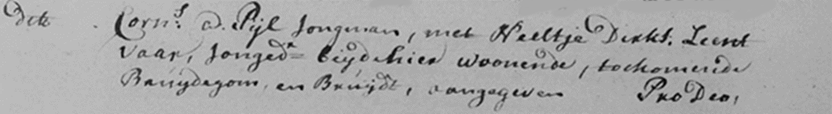 dito. Corns. vd. Pijl Jongman, met Neeltje Dirks. Leent
vaar, Jonged. beijde hier woonende, toekomende
Bruijdegom, en Bruijdt, aangegeven Pro Deo,